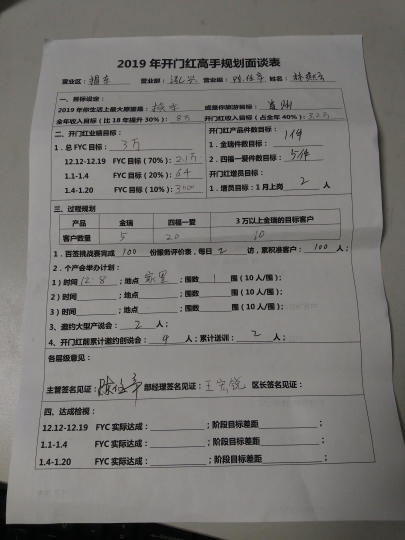 2019年开门红高手规划面谈表
营业区： 营业部： 营业组： 姓名：
一、目标设定：
2019年你生活上最大愿望是： 或是你旅游目标：
全年收入目标（比18年提升30%）：8万 开门红收入目标（占全年40%）：3.2万
二、开门红业绩目标： 开门红产品件数目标：
1．总FYC目标：3万 1．金瑞件数目标：1件
12.12-12.19 FYC目标（70%）：2.1万 2．四福一爱件数目标：5件
1.1-1.4 FYC目标（20%）： 开门红增员目标：
1.4-1.20 FYC目标（10%）：3000 1．增员目标：1月上岗 2 人
三、过程规划
产品 金瑞 四福一爱 3万以上金瑞的目标客户
客户数量 5 20 10
1．百签挑战赛完成 100 份服务评价表，每日 2 访，累积准客户：100 人；
2．个产会举办计划：
1）时间 12.8 ；地点 家里 ；围数 1 围（10人/围）；
2）时间 ；地点 ；围数 围（10人/围）；
3）时间 ；地点 ；围数 围（10人/围）；
3、邀约大型产说会： 2 人；
4、开门红前累计邀约创说会： 9 人；累计送训： 2 人；
各层级意见：
主管签名见证： 部经理签名见证：王宏锐 区长签名见证：
四、达成检视：
12.12-12.19 FYC实际达成： ；阶段目标差距 ；
1.1-1.4 FYC实际达成： ；阶段目标差距 ；
1.4-1.20 FYC实际达成： ；阶段目标差距 ；